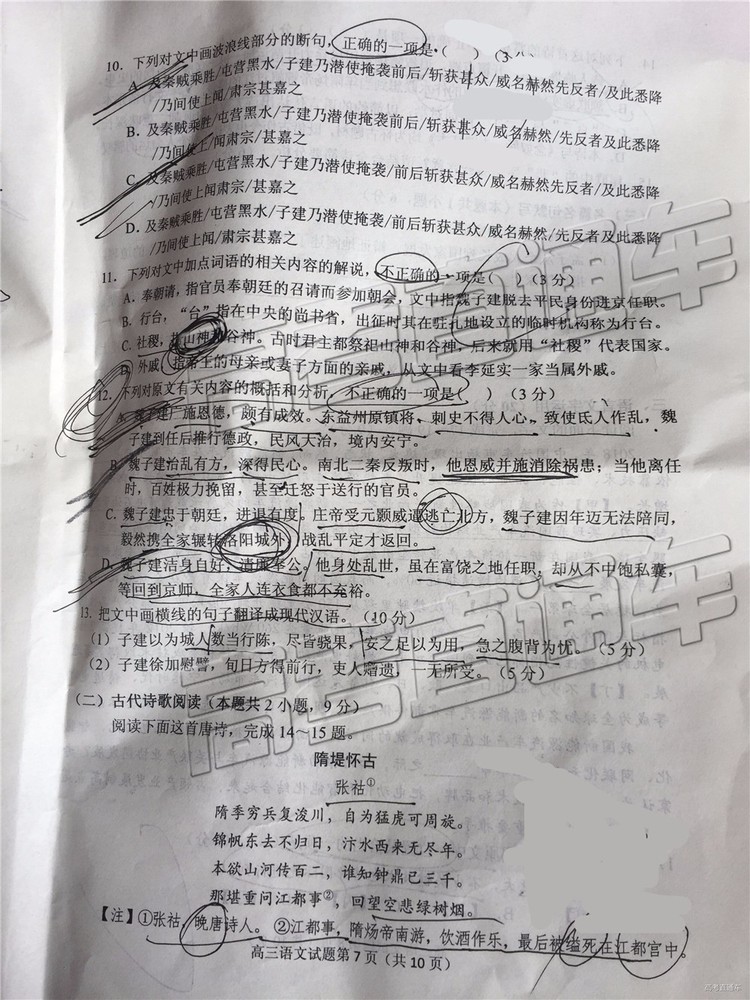 10. 下列对文中画波浪线部分的断句，正确的一项是（ ）（3
A. 及秦贼乘胜/屯营黑水/子建乃潜使掩袭前后/斩获甚众/威名赫然先反者/及此悉降
/乃间使上闻/肃宗甚嘉之
B. 及秦贼乘胜/屯营黑水/子建乃潜使掩袭前后/斩获甚众/威名赫然/先反者及此悉降
/乃间使上闻肃宗/甚嘉之
C. 及秦贼乘胜/屯营黑水/子建乃潜使掩袭/前后斩获甚众/威名赫然先反者/及此悉降
/乃间使上闻肃宗/甚嘉之
D. 及秦贼乘胜/屯营黑水/子建乃潜使掩袭/前后斩获甚众/威名赫然/先反者及此悉降
/乃间使上闻/肃宗甚嘉之
11. 下列对文中加点词语的相关内容的解说，不正确的一项是（ ）（3分）
A. 奉朝请，指官员奉朝廷的召请而参加朝会，文中指魏子建脱去平民身份进京任职。
B. 行台，“台”指在中央的尚书省，出征时其在驻扎地设立的临时机构称为行台。
C. 社稷，指山神和谷神。古时君主都祭祖山神和谷神，后来就用“社稷”代表国家。
D. 外戚，指帝王的母亲或妻子方面的亲戚，从文中看李延实一家当属外戚。
12. 下列对原文有关内容的概括和分析，不正确的一项是（ ）（3分）
A. 魏子建广施恩德，颇有成效。东益州原镇将、刺史不得人心，致使氐人作乱，魏
子建到任后推行德政，民风大治，境内安宁。
B. 魏子建治乱有方，深得民心。南北二秦反叛时，他恩威并施消除祸患；当他离任
时，百姓极力挽留，甚至迁怒于送行的官员。
C. 魏子建忠于朝廷，进退有度。庄帝受元颢威逼逃亡北方，魏子建因年迈无法陪同，
毅然携全家辗转洛阳城外，战乱平定才返回。
D. 魏子建洁身自好，清廉奉公。他身处乱世，虽在富饶之地任职，却从不中饱私囊，
等回到京师，全家人连衣食都不充裕。
13. 把文中画横线的句子翻译成现代汉语。（10分）
（1）子建以为城人数当行陈，尽皆骁果，安之足以为用，急之腹背为忧。（5分）
（2）子建徐加慰譬，旬日方得前行，吏人赠遗，一无所受。（5分）
（二）古代诗歌阅读（本题共2小题，9分）
阅读下面这首唐诗，完成14～15题。
隋堤怀古
张祜①
隋季穷兵复浚川，自为猛虎可周旋。
锦帆东去不归日，汴水西来无尽年。
本欲山河传百二，谁知钟鼎已三千。
那堪重问江都事②，回望空悲绿树烟。
【注】①张祜，晚唐诗人。②江都事，隋炀帝南游，饮酒作乐，最后被缢死在江都宫中。
高三语文试题第7页（共10页）
高考直通车
高考直通车
高考直通车